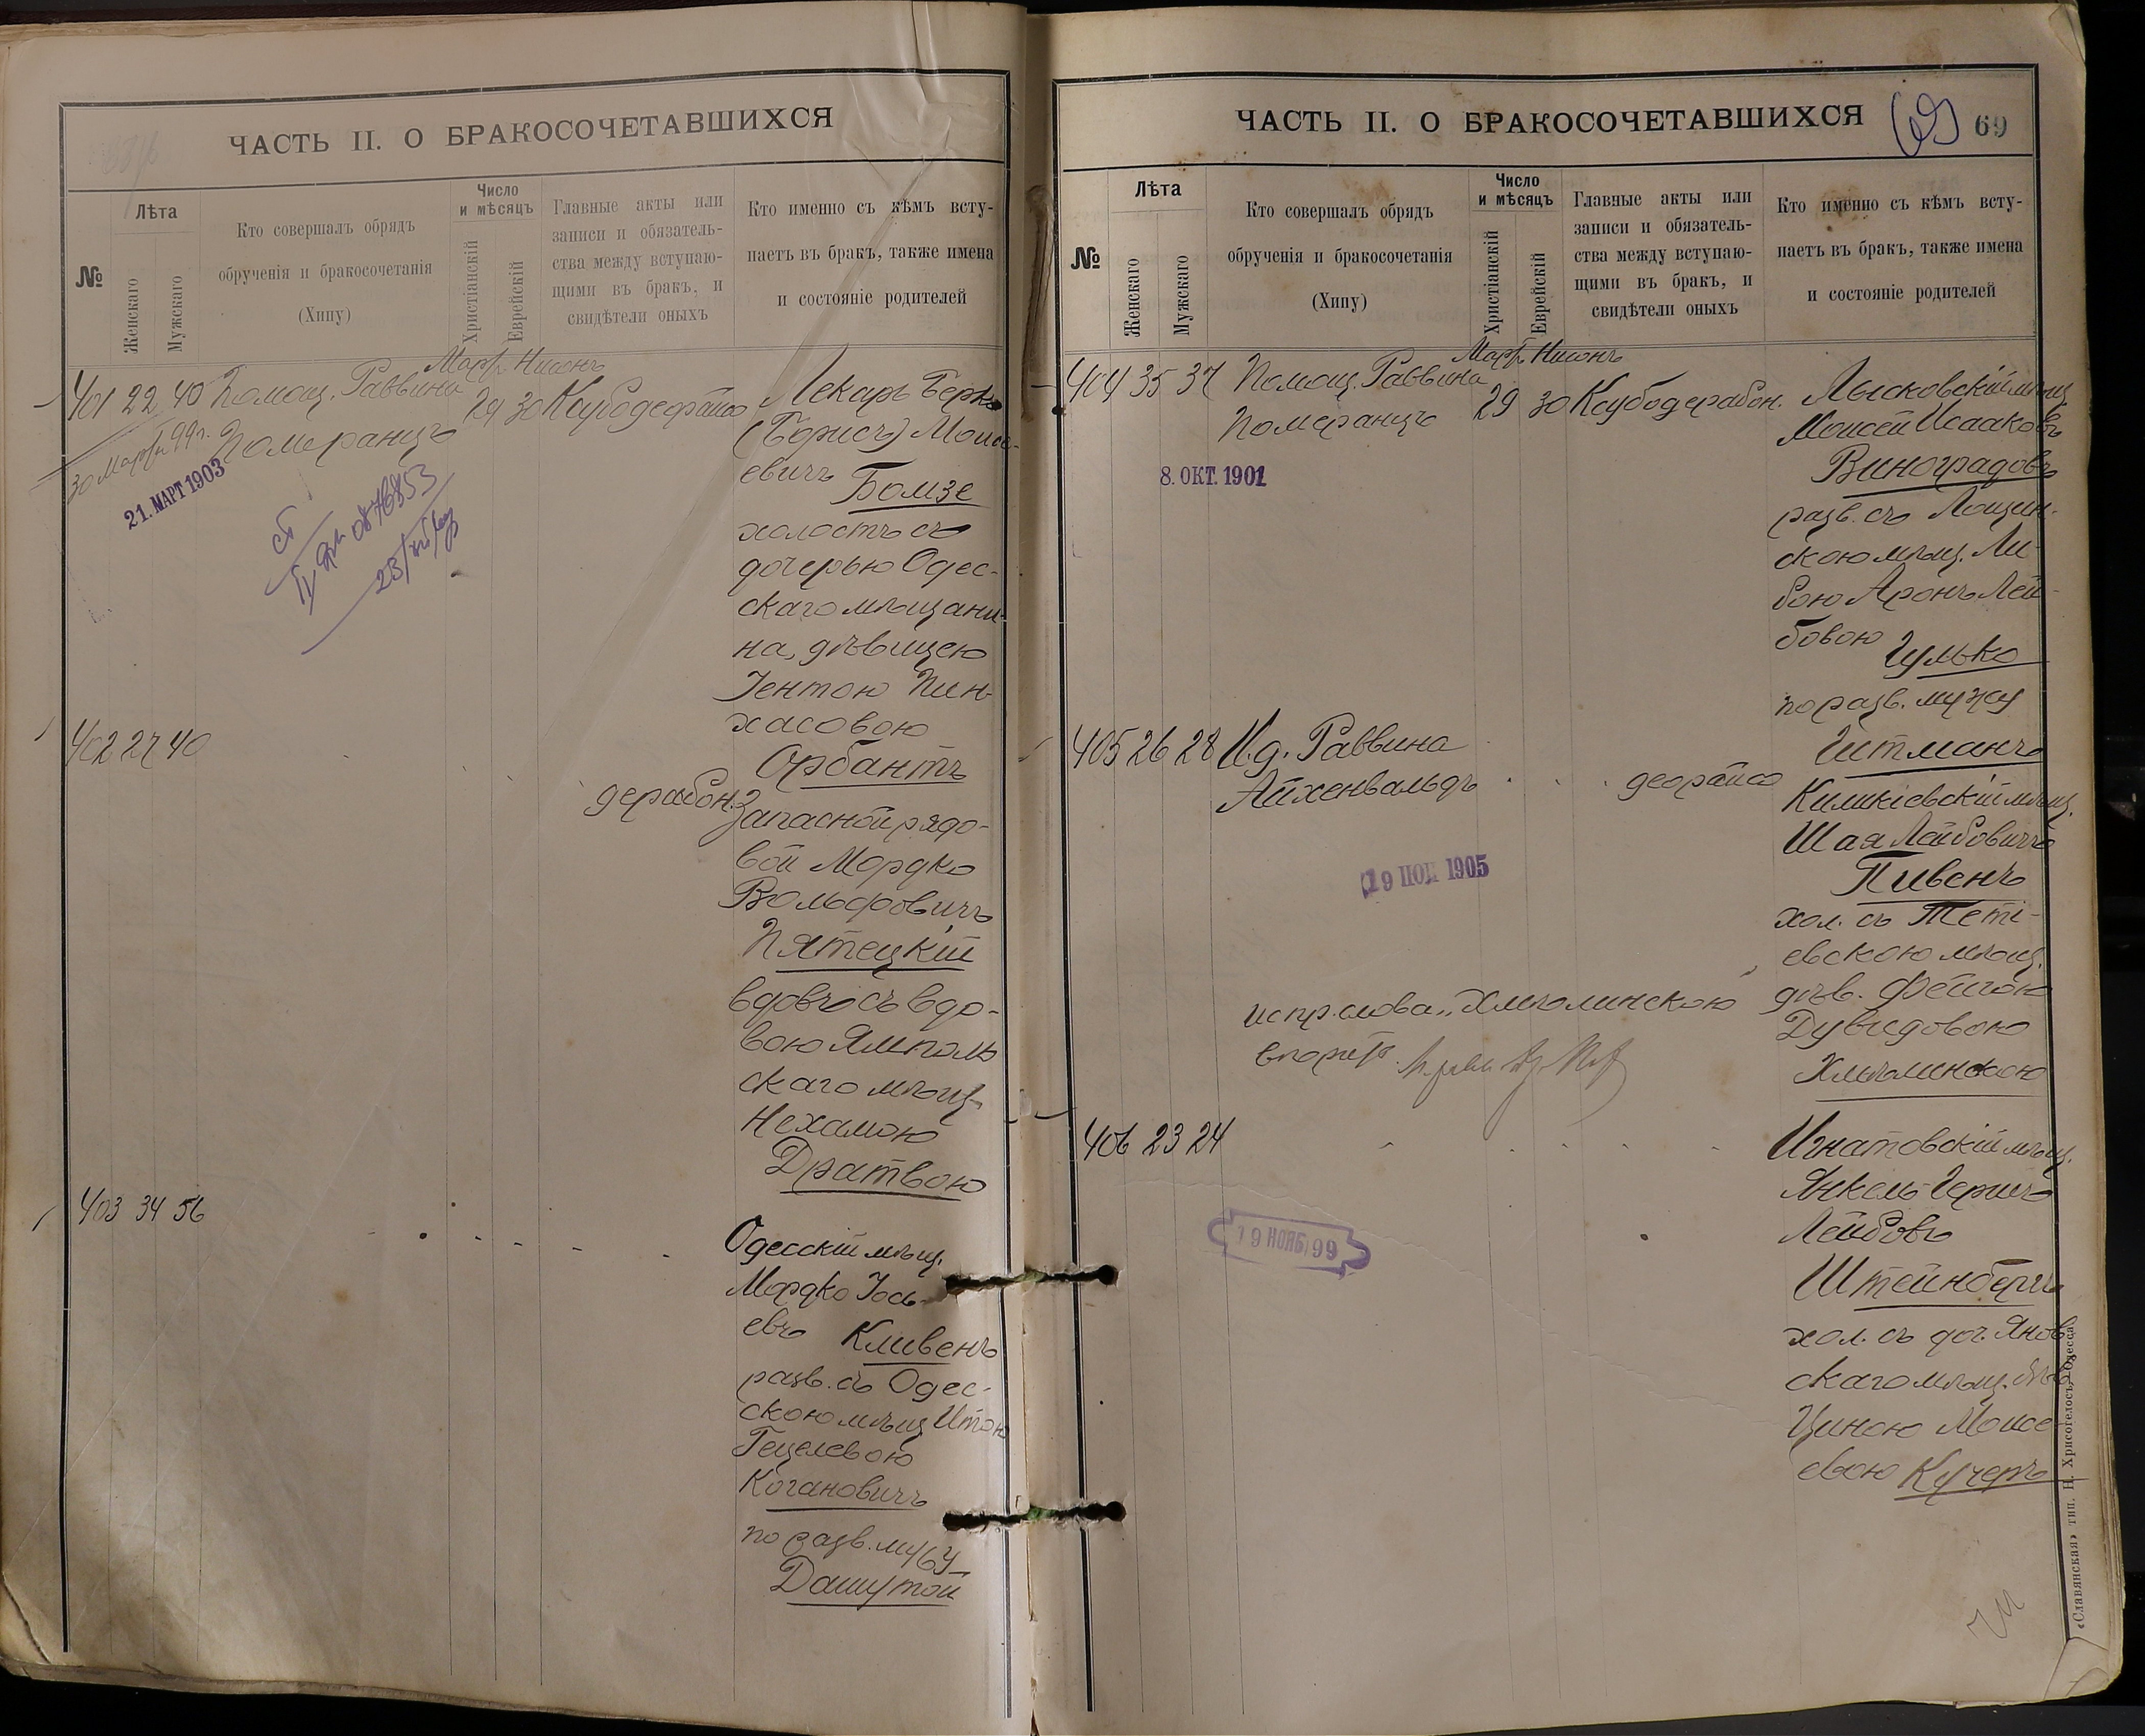 ЧАСТЬ II. О БРАКОСОЧЕТАВШИХСЯ
№
Лѣта
Женскаго
Мужскаго
Кто совершалъ обрядъ
обрученія и бракосочетанія
(Хипу)
Число
и мѣсяцъ
Христіанскій
Еврейскій
Главные акты или
записи и обязатель-
ства между вступаю-
щими въ бракъ, и
свидѣтели оныхъ
Кто именно съ кѣмъ всту-
паетъ въ бракъ, также имена
и состояніе родителей
401 22 40 Помощ. Раввина
Померанцъ
Март. Нисонъ
29 30
30 Март 99 г.
21. МАРТ 1903
Лекарь Берко
(Борисъ) Моисе-
евичъ Бомзе
холостъ съ
дочерью Одес-
скаго мѣщани-
на, дѣвицею
Іентою Пин-
хасовою
Орбантъ
402 27 40
дерабон.
Запасной рядо-
вой Мордко
Вольфовичъ
Пятецкій
вдовъ съ вдо-
вою Ямполь
скаго мѣщ.
Нехамою
Дратвою
403 34 56
Одесскій мѣщ.
Мордко Іось-
евъ Кливенъ
разв. съ Одес-
скою мѣщ Итою
Гецелевою
Когановичъ
по разв. мужу
Дашутой
ЧАСТЬ II. О БРАКОСОЧЕТАВШИХСЯ
(69) 69
№
Лѣта
Женскаго
Мужскаго
Кто совершалъ обрядъ
обрученія и бракосочетанія
(Хипу)
Число
и мѣсяцъ
Христіанскій
Еврейскій
Главные акты или
записи и обязатель-
ства между вступаю-
щими въ бракъ, и
свидѣтели оныхъ
Кто именно съ кѣмъ всту-
паетъ въ бракъ, также имена
и состояніе родителей
404 35 37 Помощ. Раввина
Померанцъ
Март. Нисонъ
29 30 Ксубодерабон.
8. ОКТ. 1901
Лысковскій мѣщ
Моисей Исааковъ
Виноградовъ
разв. съ
скою мѣщ. Ли-
бою Аронъ Лей-
бовою
Гулько
по разв. мужу
Гитманъ
405 26 28 И.д. Раввина
Айхенвальдъ
деорайсо
19 1905
Шая Лейбовичъ
Пивенъ
хол. съ Теті-
евскою мѣщ.
дѣв. Фейгою
Дувидовою
Хмѣлинскою
испр. слова „Хмѣлинскою
406 23 24
19 НОЯБ 99
Игнатовскій мѣщ.
Янкель Гершъ
Лейбовъ
Штейнбергъ
хол. съ доч. Янов
скаго мѣщ. дѣв.
Циною Моисе
евою Кучеръ
«Славянская» тип. Н. Хрисогелосъ, Одесса